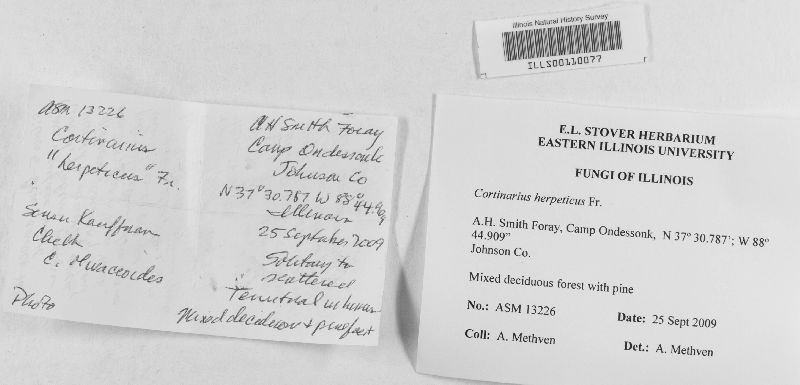 Illinois Natural History Survey
ILLS00110077
ASM 13226
Cortinarius
"herpeticus" Fr.
Sensu Kauffman
Check
C. olivaceoides
Photo
AH Smith Foray
Camp Ondessonk
Johnson Co
N 37° 30.787 W 88° 44.909
Illinois
25 September 2009
Solitary to
scattered
Terrestrial in humus
Mixed deciduous & pine forest
E.L. STOVER HERBARIUM
EASTERN ILLINOIS UNIVERSITY
FUNGI OF ILLINOIS
Cortinarius herpeticus Fr.
A.H. Smith Foray, Camp Ondessonk, N 37º 30.787'; W 88º
44.909"
Johnson Co.
Mixed deciduous forest with pine
No.: ASM 13226 Date: 25 Sept 2009
Coll: A. Methven Det.: A. Methven